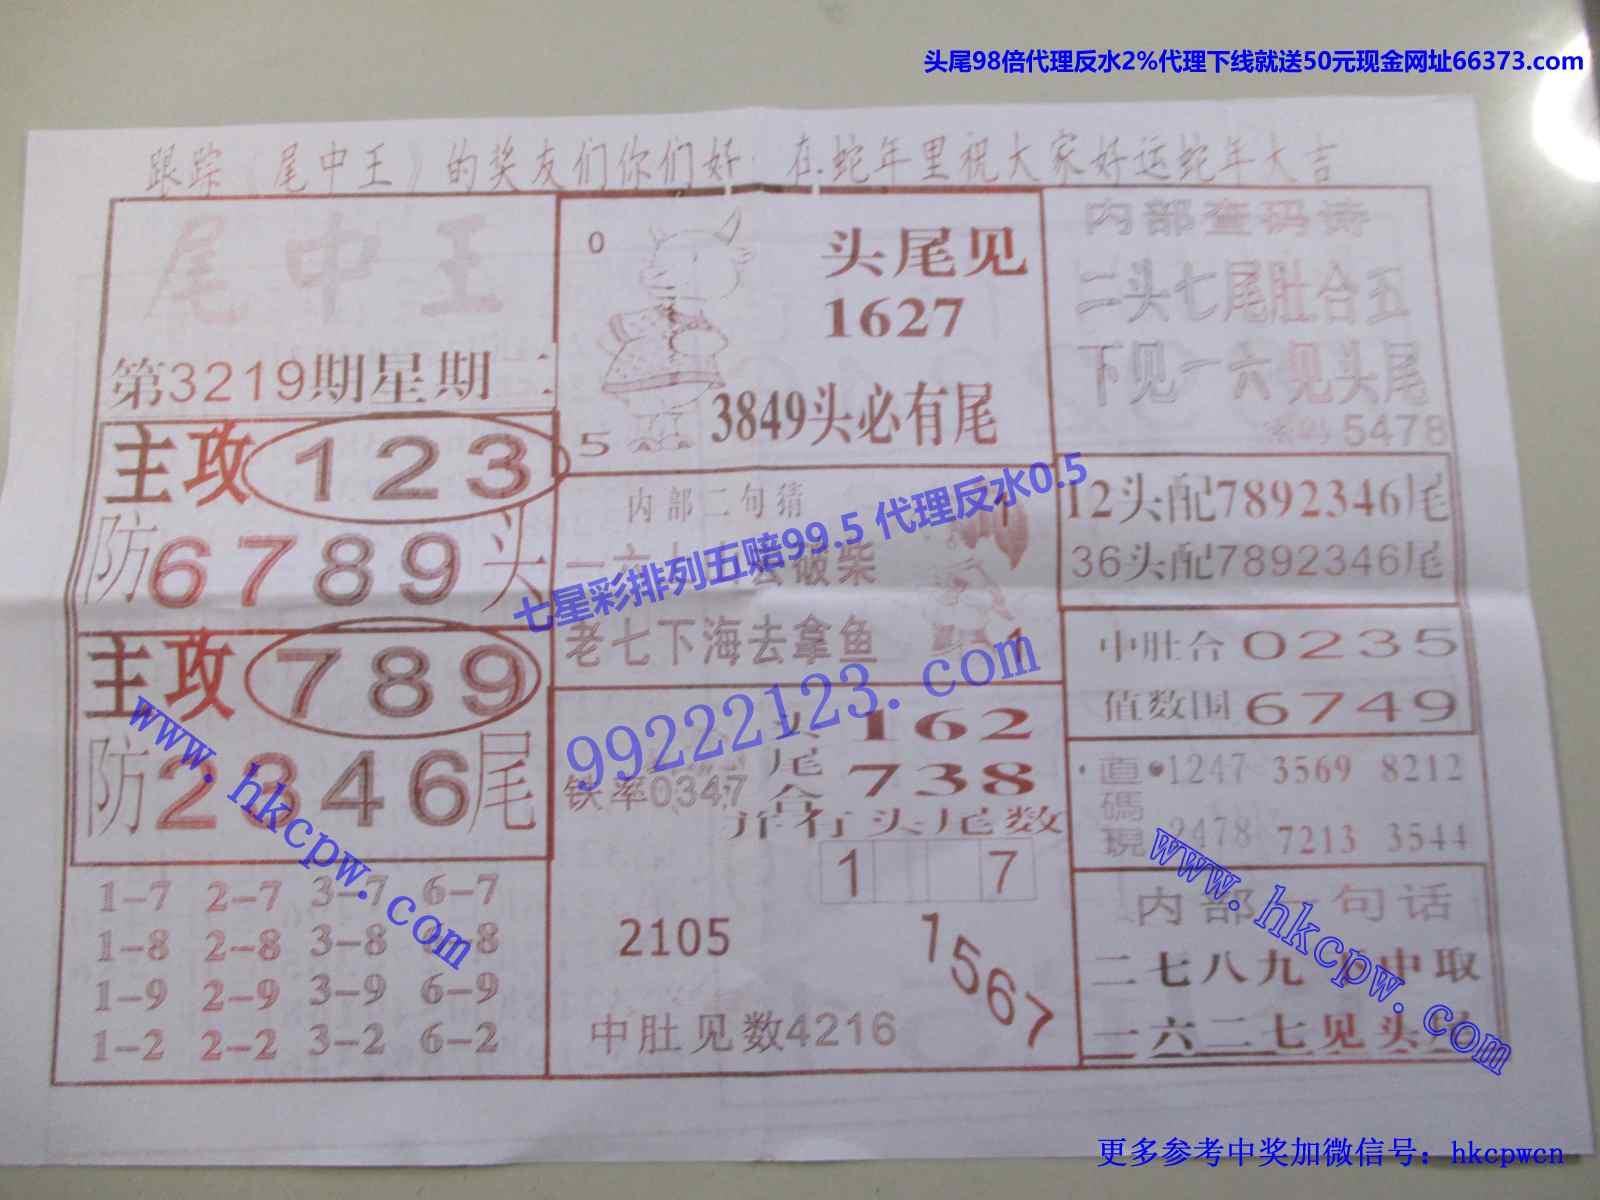 头尾98倍代理反水2%代理下线就送50元现金网址66373.com
跟踪《尾中王》的奖友们你们好 在蛇年里祝大家好运蛇年大吉
尾中王
第3219期星期二
主攻123
防6789头
主攻789
防2346尾
1-7 2-7 3-7 6-7
1-8 2-8 3-8 6-8
1-9 2-9 3-9 6-9
1-2 2-2 3-2 6-2
0
头尾见
1627
5
3849头必有尾
内部二句猜
去破柴
老七下海去拿鱼
1
七星彩排列五赔99.5 代理反水0.5
99222123.com
头162
尾738
合
铁率0347
并有头尾数
1 7
2105
1567
中肚见数4216
内部查码诗
二头七尾肚合五
下见一六见头尾
5478
12头配7892346尾
36头配7892346尾
中肚合0235
值数围6749
直碼現
1247 3569 8212
2478 7213 3544
内部一句话
二七八九 中取
一六二七见头尾
www.hkcpw.com
www.hkcpw.com
更多参考中奖加微信号：hkcpwcn